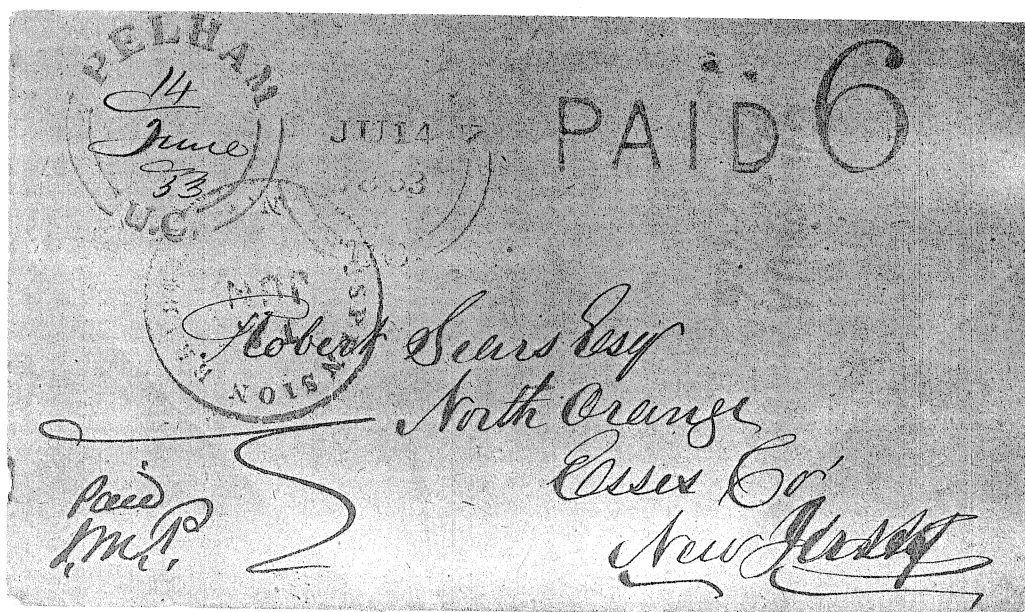 PELHAM
14
June
53
U.C.
JU14
PAID 6
SUSPENSION
Robert Sears Esq
North Orange
Essex Co
New Jersey
Paid